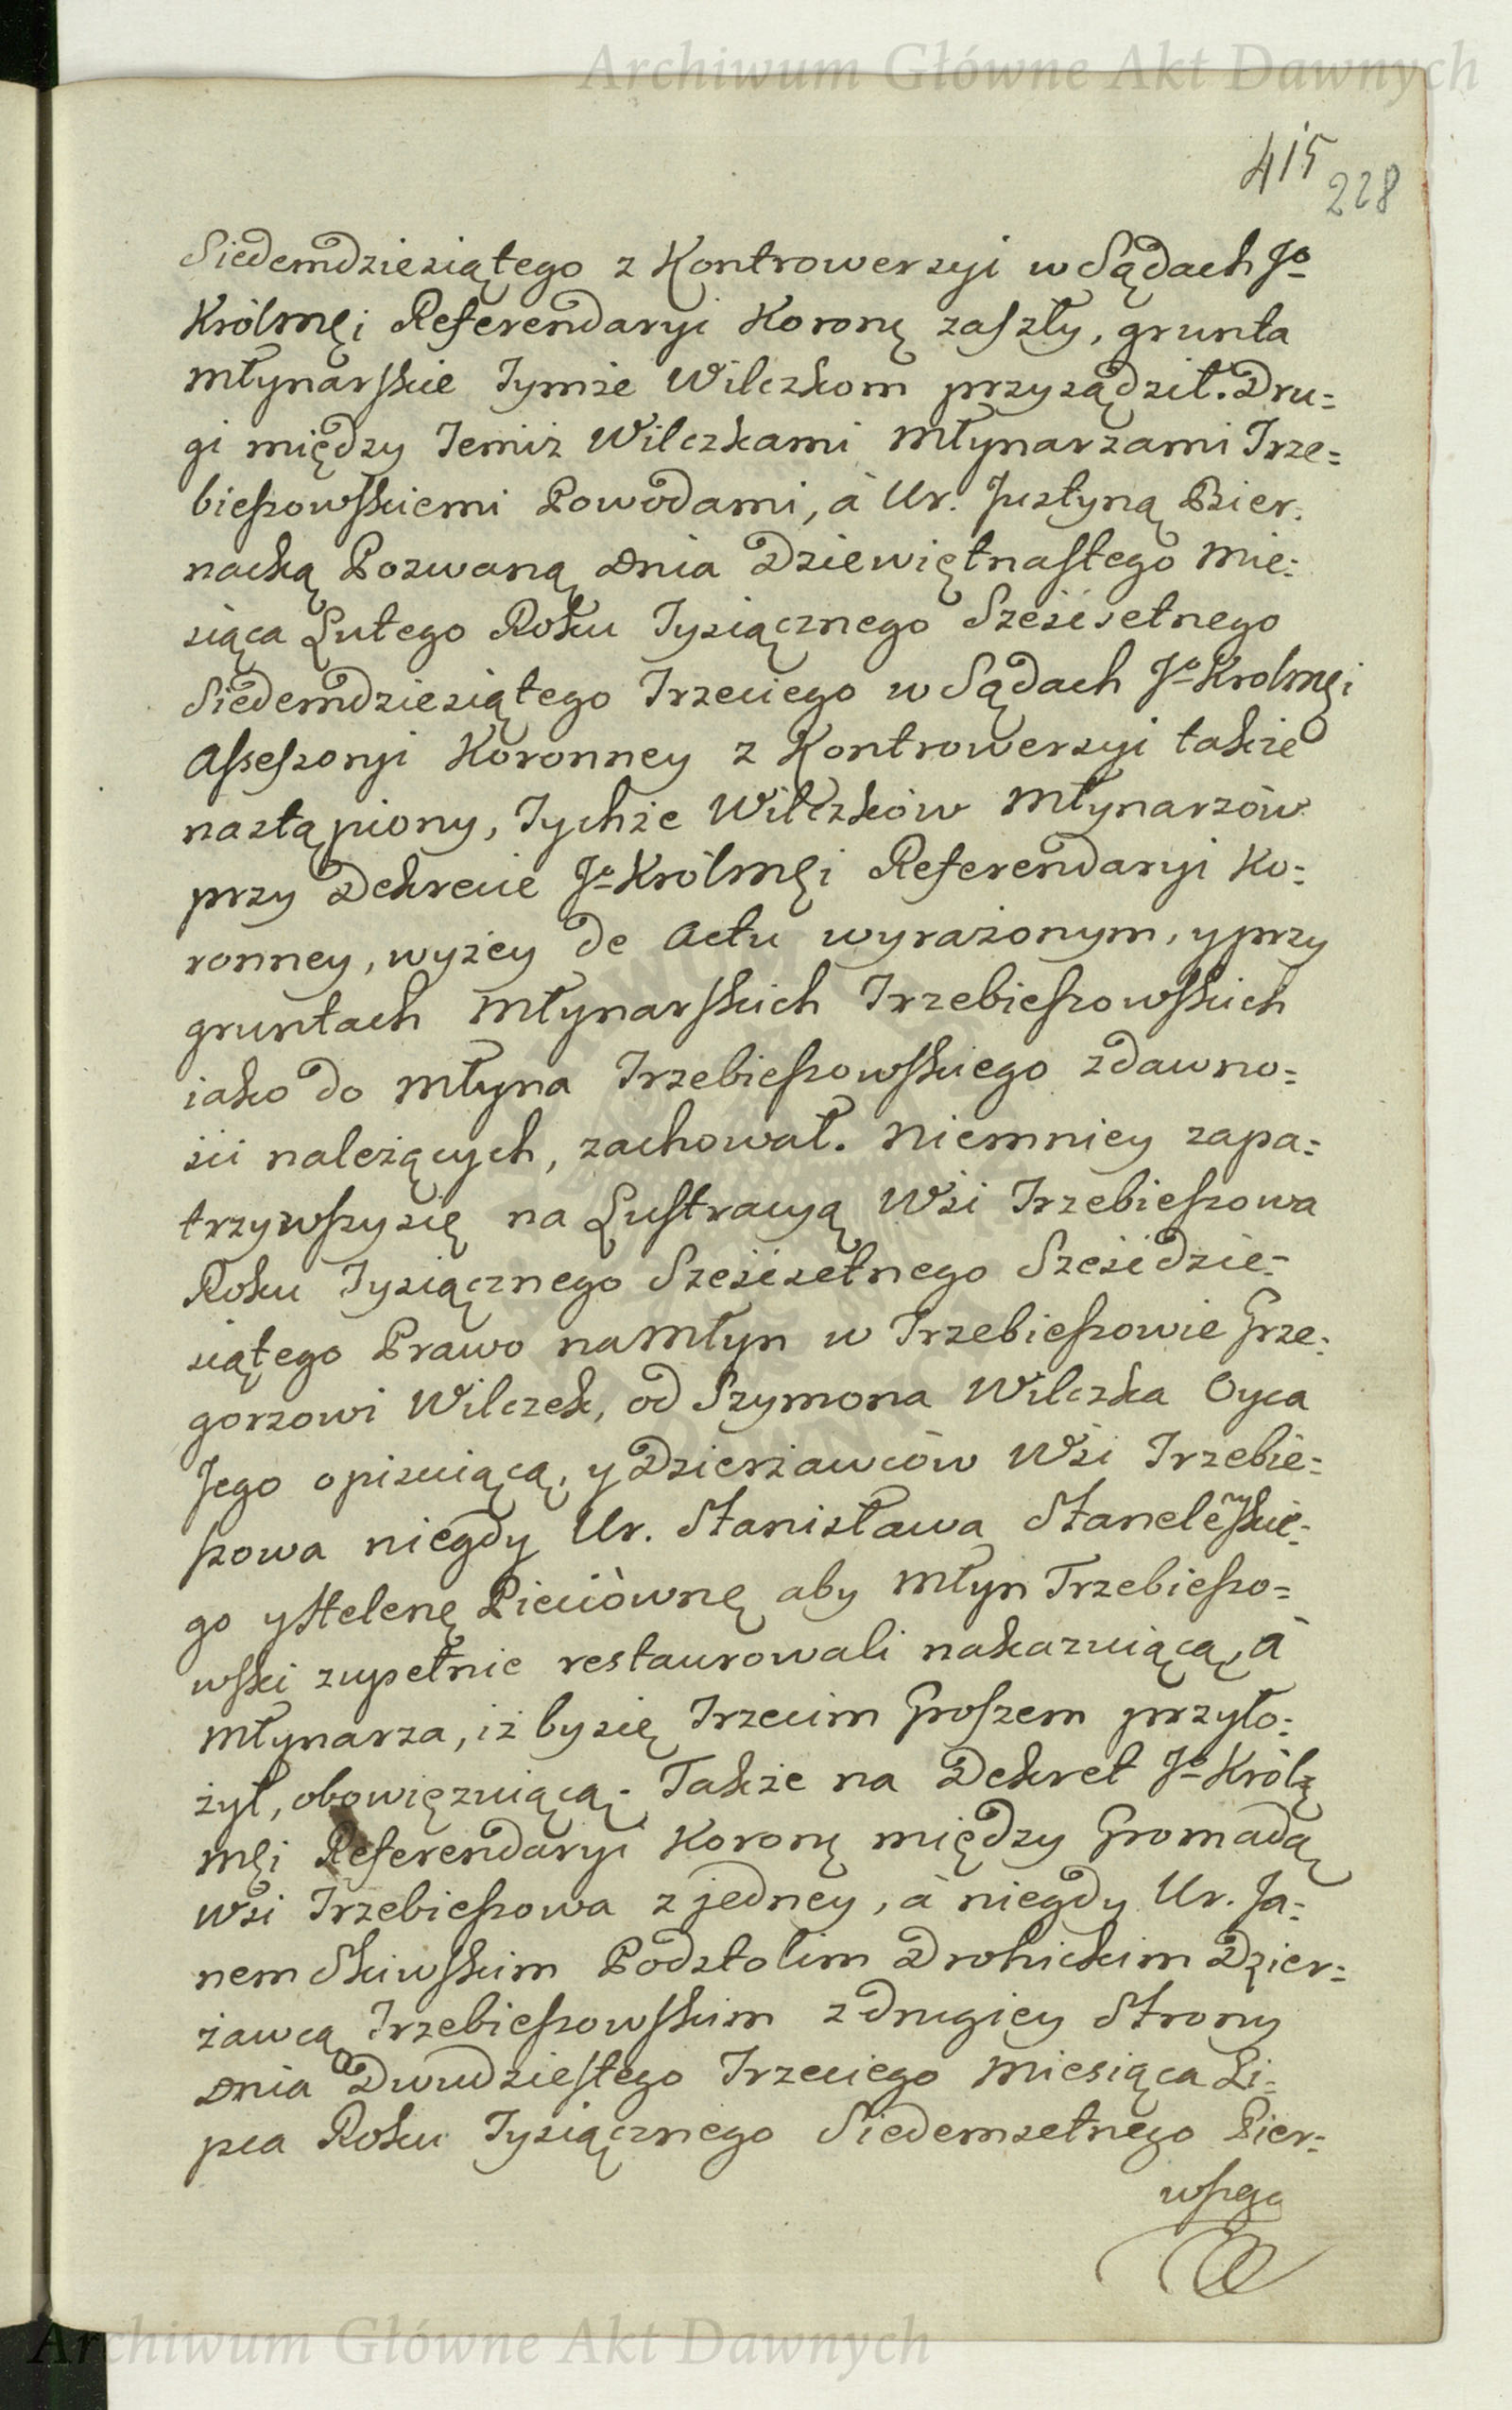 Archiwum Główne Akt Dawnych
415
228
Siedemdziesiątego z Kontrowersyi w Sądach Jo
Królmći Referendaryi Koronę zaszły, grunta
Młynarskie Tymże Wilczkom przysądził. Dru=
gi między Temiż Wilczkami Młynarzami Trze=
bieszowskiemi Powodami, à Ur. Justyną Bier=
nacką Pozwaną dnia Dziewiętnastego Mie=
siąca Lutego Roku Tysiącznego Sześćsetnego
Siedemdziesiątego Trzeciego w Sądach Jo Krolmći
Assessoryi Koronney z Kontrowersyi także
nastąpiony, Tychże Wilczków Młynarzów
przy Dekrecie Jo Królmći Referendaryi Ko=
ronney, wyżey de Actu wyrażonym, y przy
gruntach Młynarskich Trzebieszowskich
iako do Młyna Trzebieszowskiego zdawno=
ści należących, zachował. Niemniey zapa=
trzywszy się na Lustracyą Wsi Trzebieszowa
Roku Tysiącznego Sześćsetnego Sześćdzie=
siątego Prawo na Młyn w Trzebieszowie Grze=
gorzowi Wilczek, od Szymona Wilczka Oyca
Jego opisuiącą, y Dzierżawców Wsi Trzebie=
szowa niegdy Ur. Stanisława
go y Helenę Pieciównę aby Młyn Trzebieszo=
wski zupełnie restaurowali nakazuiącą, à
Młynarza, iż by się Trzecim Groszem przyło=
żył, obowięzuiącą. Także na Dekret Jo Królę
mći Referendaryi Koronę między Gromadą
Wsi Trzebieszowa z jedney, à niegdy Ur. Ja=
nem Skiwskim Podstolim Drohickim Dzier=
żawcą Trzebieszowskim z drugiey Strony
dnia Dwudziestego Trzeciego Miesiąca Li=
pca Roku Tysiącznego Siedemsetnego Pier=
wszego
Archiwum Główne Akt Dawnych